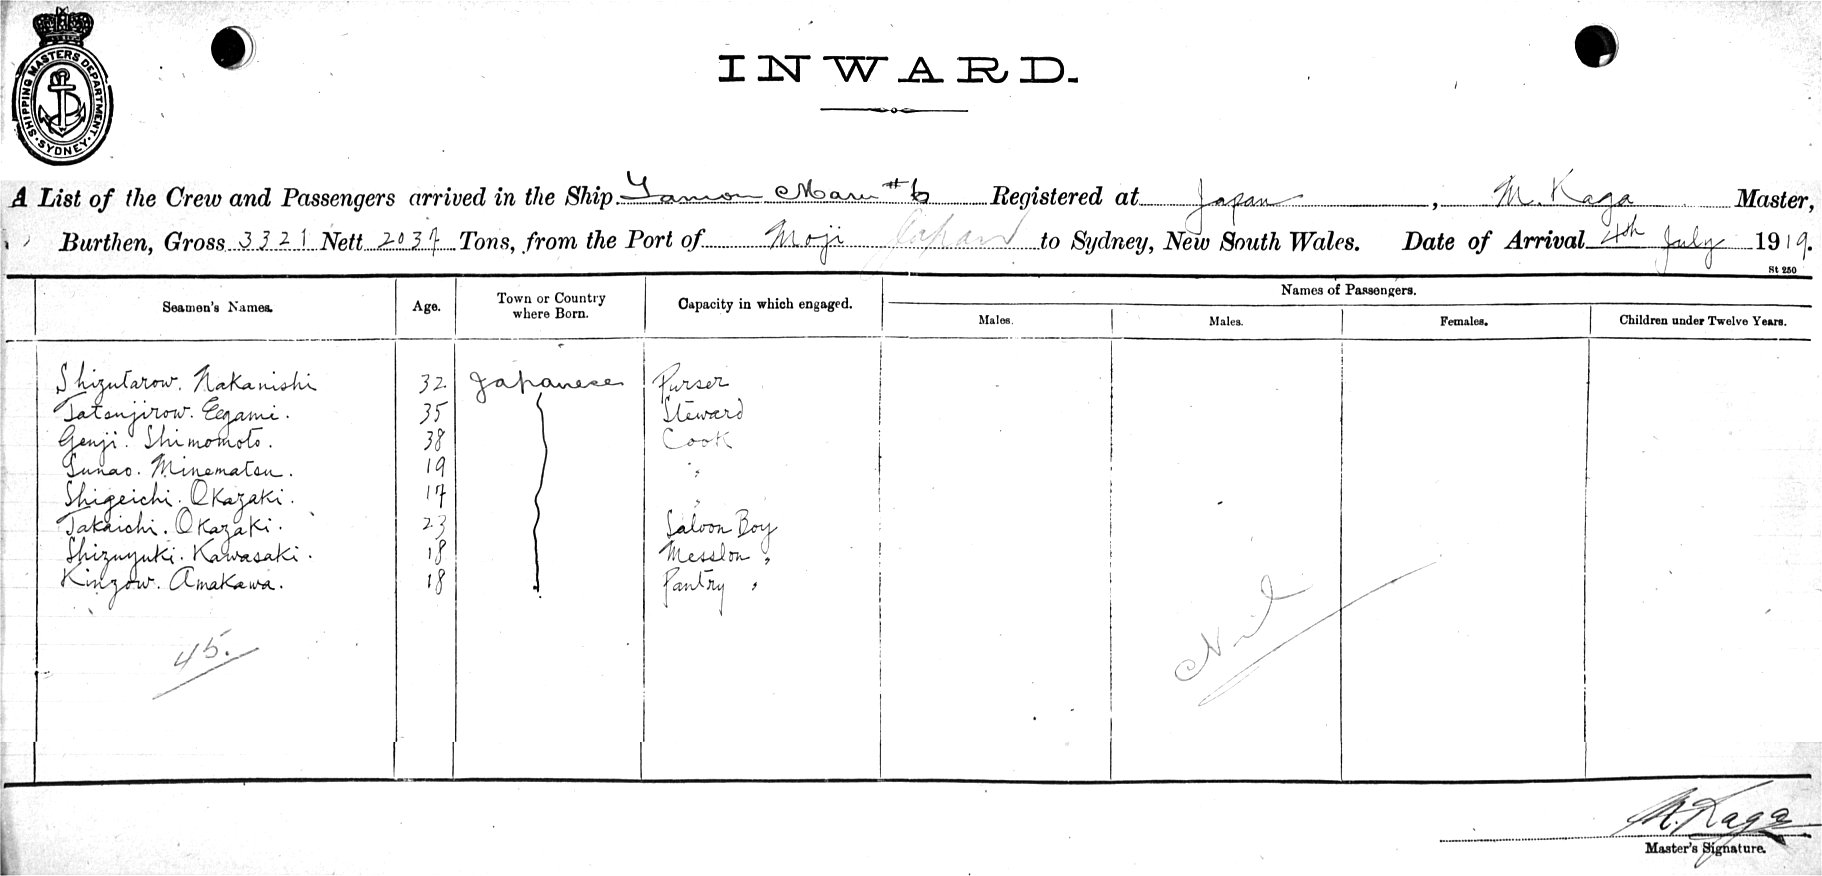 SHIPPING MASTERS DEPARTMENT · SYDNEY ·
INWARD.
A List of the Crew and Passengers arrived in the Ship Yamon Maru #6 Registered at Japan, M. Kaga Master,
Burthen, Gross 3321 Nett 2037 Tons, from the Port of Moji Japan to Sydney, New South Wales. Date of Arrival 4th July 1919.
St 250
Seamen's Names. Age. Town or Country where Born. Capacity in which engaged. Names of Passengers.
Males. Males. Females. Children under Twelve Years.
Shizutarow. Nakanishi 32 Japanese Purser
Tatsujirow. Eegami. 35 Steward
Genji. Shimomoto. 38 Cook
Sunao. Minematsu. 19 "
Shigeichi. Okazaki. 17 "
Takaichi. Okazaki. 23 Saloon Boy
Shizuyuki. Kawasaki. 18 Messlon "
Kinzow. Amakawa. 18 Pantry "
45.
Nil
M. Kaga
Master's Signature.